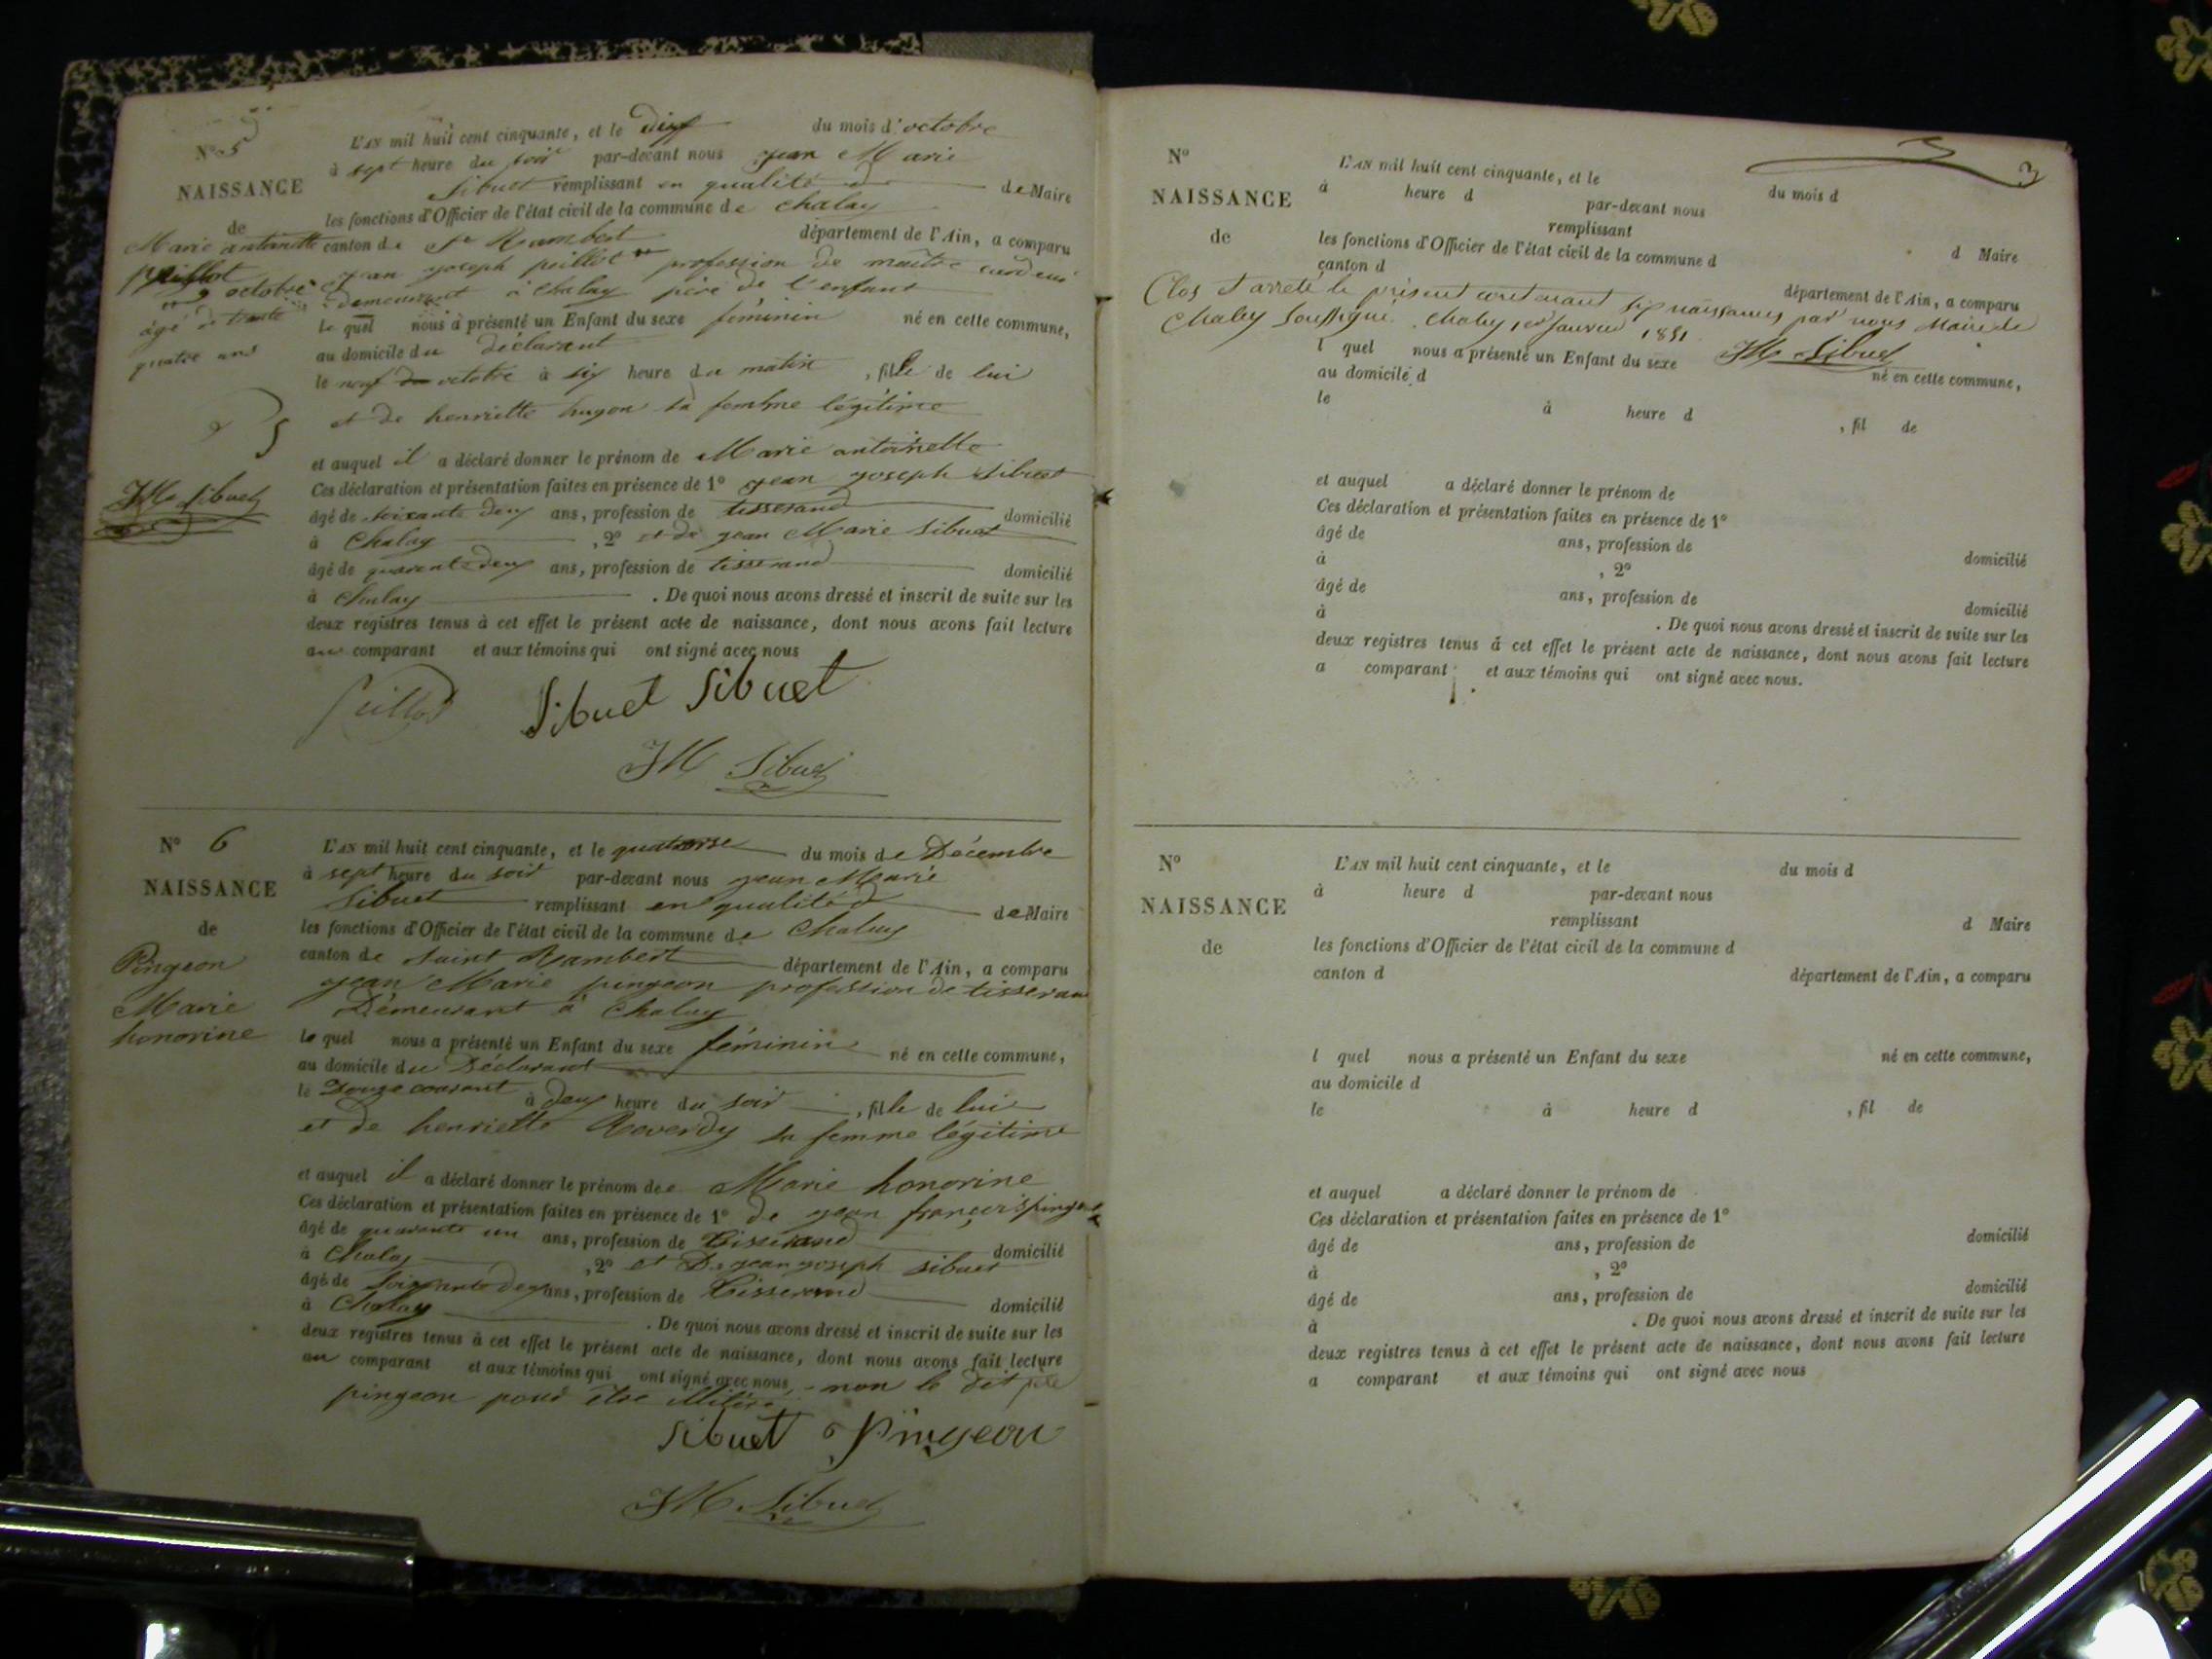 N° 5
NAISSANCE
de
Marie antoinette
peillot
9 octobre
âgé de trente
quatre ans
JM Sibuet
L'AN mil huit cent cinquante, et le dix du mois d'octobre
à sept heure du soir par-devant nous jean Marie
Sibuet remplissant en qualité de Maire
les fonctions d'Officier de l'état civil de la commune de Chaley
canton de St Rambert département de l'Ain, a comparu
jean joseph peillot profession de maitre
demeurant à Chaley père de l'enfant
le quel nous à présenté un Enfant du sexe féminin né en cette commune,
au domicile du déclarant
le neuf octobre à six heure du matin, fille de lui
et de henriette sa femme légitime
et auquel il a déclaré donner le prénom de Marie antoinette
Ces déclaration et présentation faites en présence de 1° jean joseph Sibuet
âgé de soixante deux ans, profession de tisserand domicilié
à Chaley, 2° et de jean Marie Sibuet
âgé de quarente deux ans, profession de tisserand domicilié
à Chaley. De quoi nous avons dressé et inscrit de suite sur les
deux registres tenus à cet effet le présent acte de naissance, dont nous avons fait lecture
au comparant et aux témoins qui ont signé avec nous
Peillot Sibuet Sibuet
JM Sibuet
N° 6
NAISSANCE
de
Pingeon
Marie
honorine
L'AN mil huit cent cinquante, et le quatorse du mois de Décembre
à sept heure du soir par-devant nous jean Marie
Sibuet remplissant en qualité de Maire
les fonctions d'Officier de l'état civil de la commune de Chaley
canton de Saint Rambert département de l'Ain, a comparu
jean Marie pingeon profession de tisserand
Demeurant à Chaley
le quel nous a présenté un Enfant du sexe féminin né en cette commune,
au domicile du Déclarant
le Douze courant à deux heure du soir, fille de lui
et de henriette Reverdy sa femme légitime
et auquel il a déclaré donner le prénom de Marie honorine
Ces déclaration et présentation faites en présence de 1° de jean françois pingeon
âgé de quarente un ans, profession de tisserand domicilié
à Chaley, 2° et De jean joseph sibuet
âgé de soixante deux ans, profession de tisserand domicilié
à Chaley. De quoi nous avons dressé et inscrit de suite sur les
deux registres tenus à cet effet le présent acte de naissance, dont nous avons fait lecture
au comparant et aux témoins qui ont signé avec nous non le dit
pingeon pour être illitéré
Sibuet Pingeon
JM Sibuet
3
N°
NAISSANCE
de
L'AN mil huit cent cinquante, et le du mois d
à heure d par-devant nous
remplissant d Maire
les fonctions d'Officier de l'état civil de la commune d
canton d département de l'Ain, a comparu
Clos et arrêté le présent contenant six naissances par nous Maire de
Chaley Soussigné. Chaley 1er Janvier 1851
JM Sibuet
l quel nous a présenté un Enfant du sexe né en cette commune,
au domicile d
le à heure d , fil de
et auquel a déclaré donner le prénom de
Ces déclaration et présentation faites en présence de 1°
âgé de ans, profession de domicilié
à , 2°
âgé de ans, profession de domicilié
à . De quoi nous avons dressé et inscrit de suite sur les
deux registres tenus à cet effet le présent acte de naissance, dont nous avons fait lecture
a comparant et aux témoins qui ont signé avec nous.
N°
NAISSANCE
de
L'AN mil huit cent cinquante, et le du mois d
à heure d par-devant nous
remplissant d Maire
les fonctions d'Officier de l'état civil de la commune d
canton d département de l'Ain, a comparu
l quel nous a présenté un Enfant du sexe né en cette commune,
au domicile d
le à heure d , fil de
et auquel a déclaré donner le prénom de
Ces déclaration et présentation faites en présence de 1°
âgé de ans, profession de domicilié
à , 2°
âgé de ans, profession de domicilié
à . De quoi nous avons dressé et inscrit de suite sur les
deux registres tenus à cet effet le présent acte de naissance, dont nous avons fait lecture
a comparant et aux témoins qui ont signé avec nous